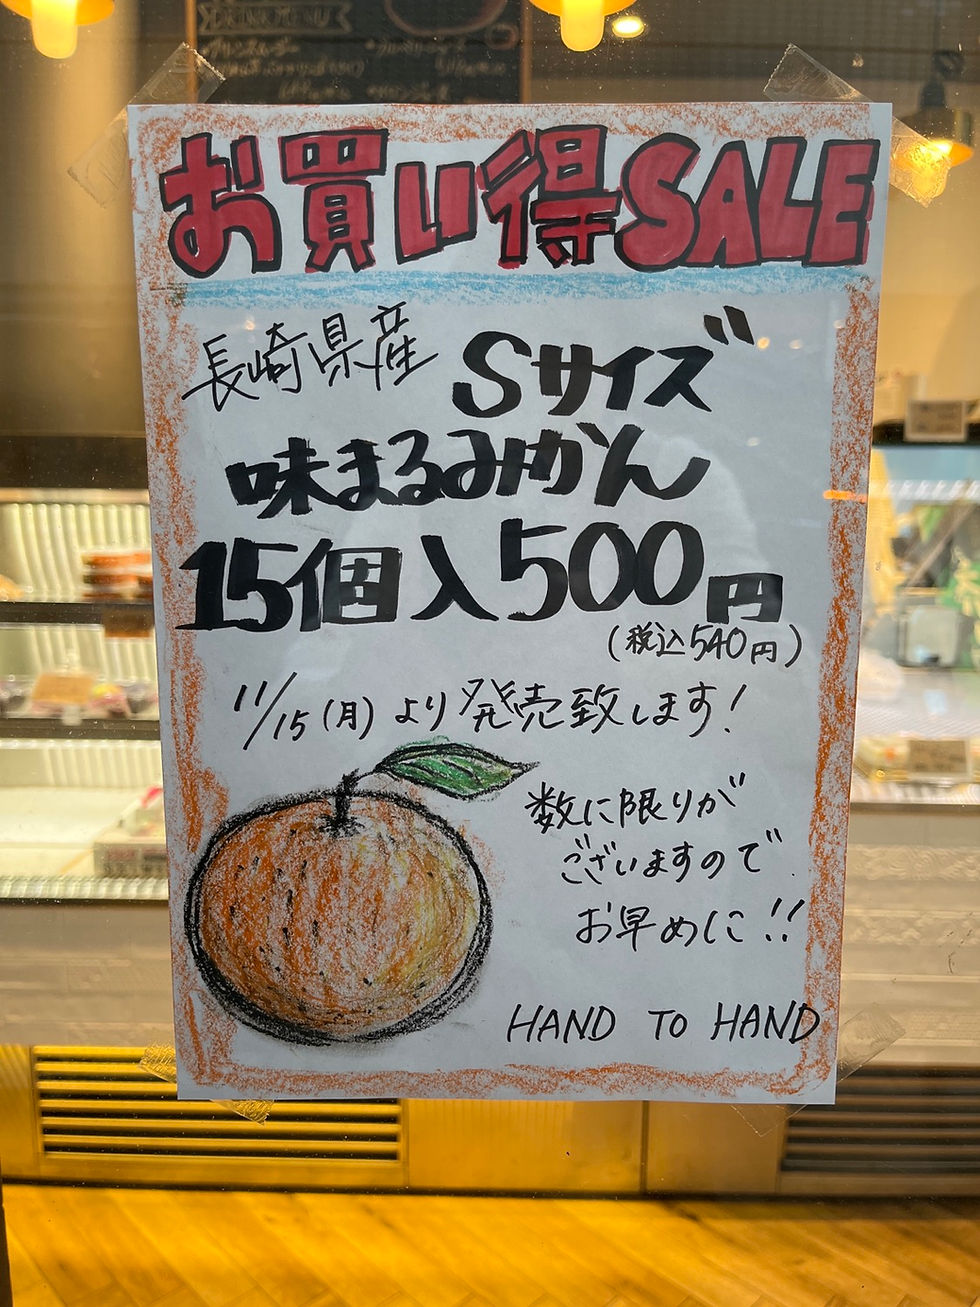 DRINK MENU
お買い得SALE
長崎県産 Sサイズ
味まるみかん
15個入500円
(税込540円)
11/15(月)より発売致します!
数に限りが
ございますので
お早めに!!
HAND TO HAND